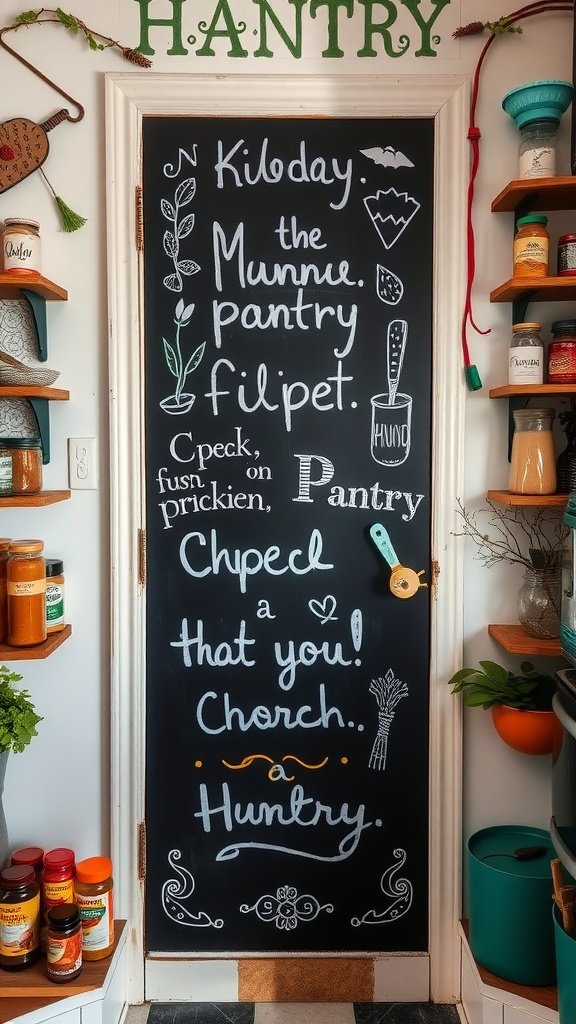 HANTRY
N Kiloday.
the
Munnue.
pantry
filipet.
Cpeck,
fusn on
prickien,
Pantry
HUND
Chpecl
a
that you!
Chorch..
a
Huntry.